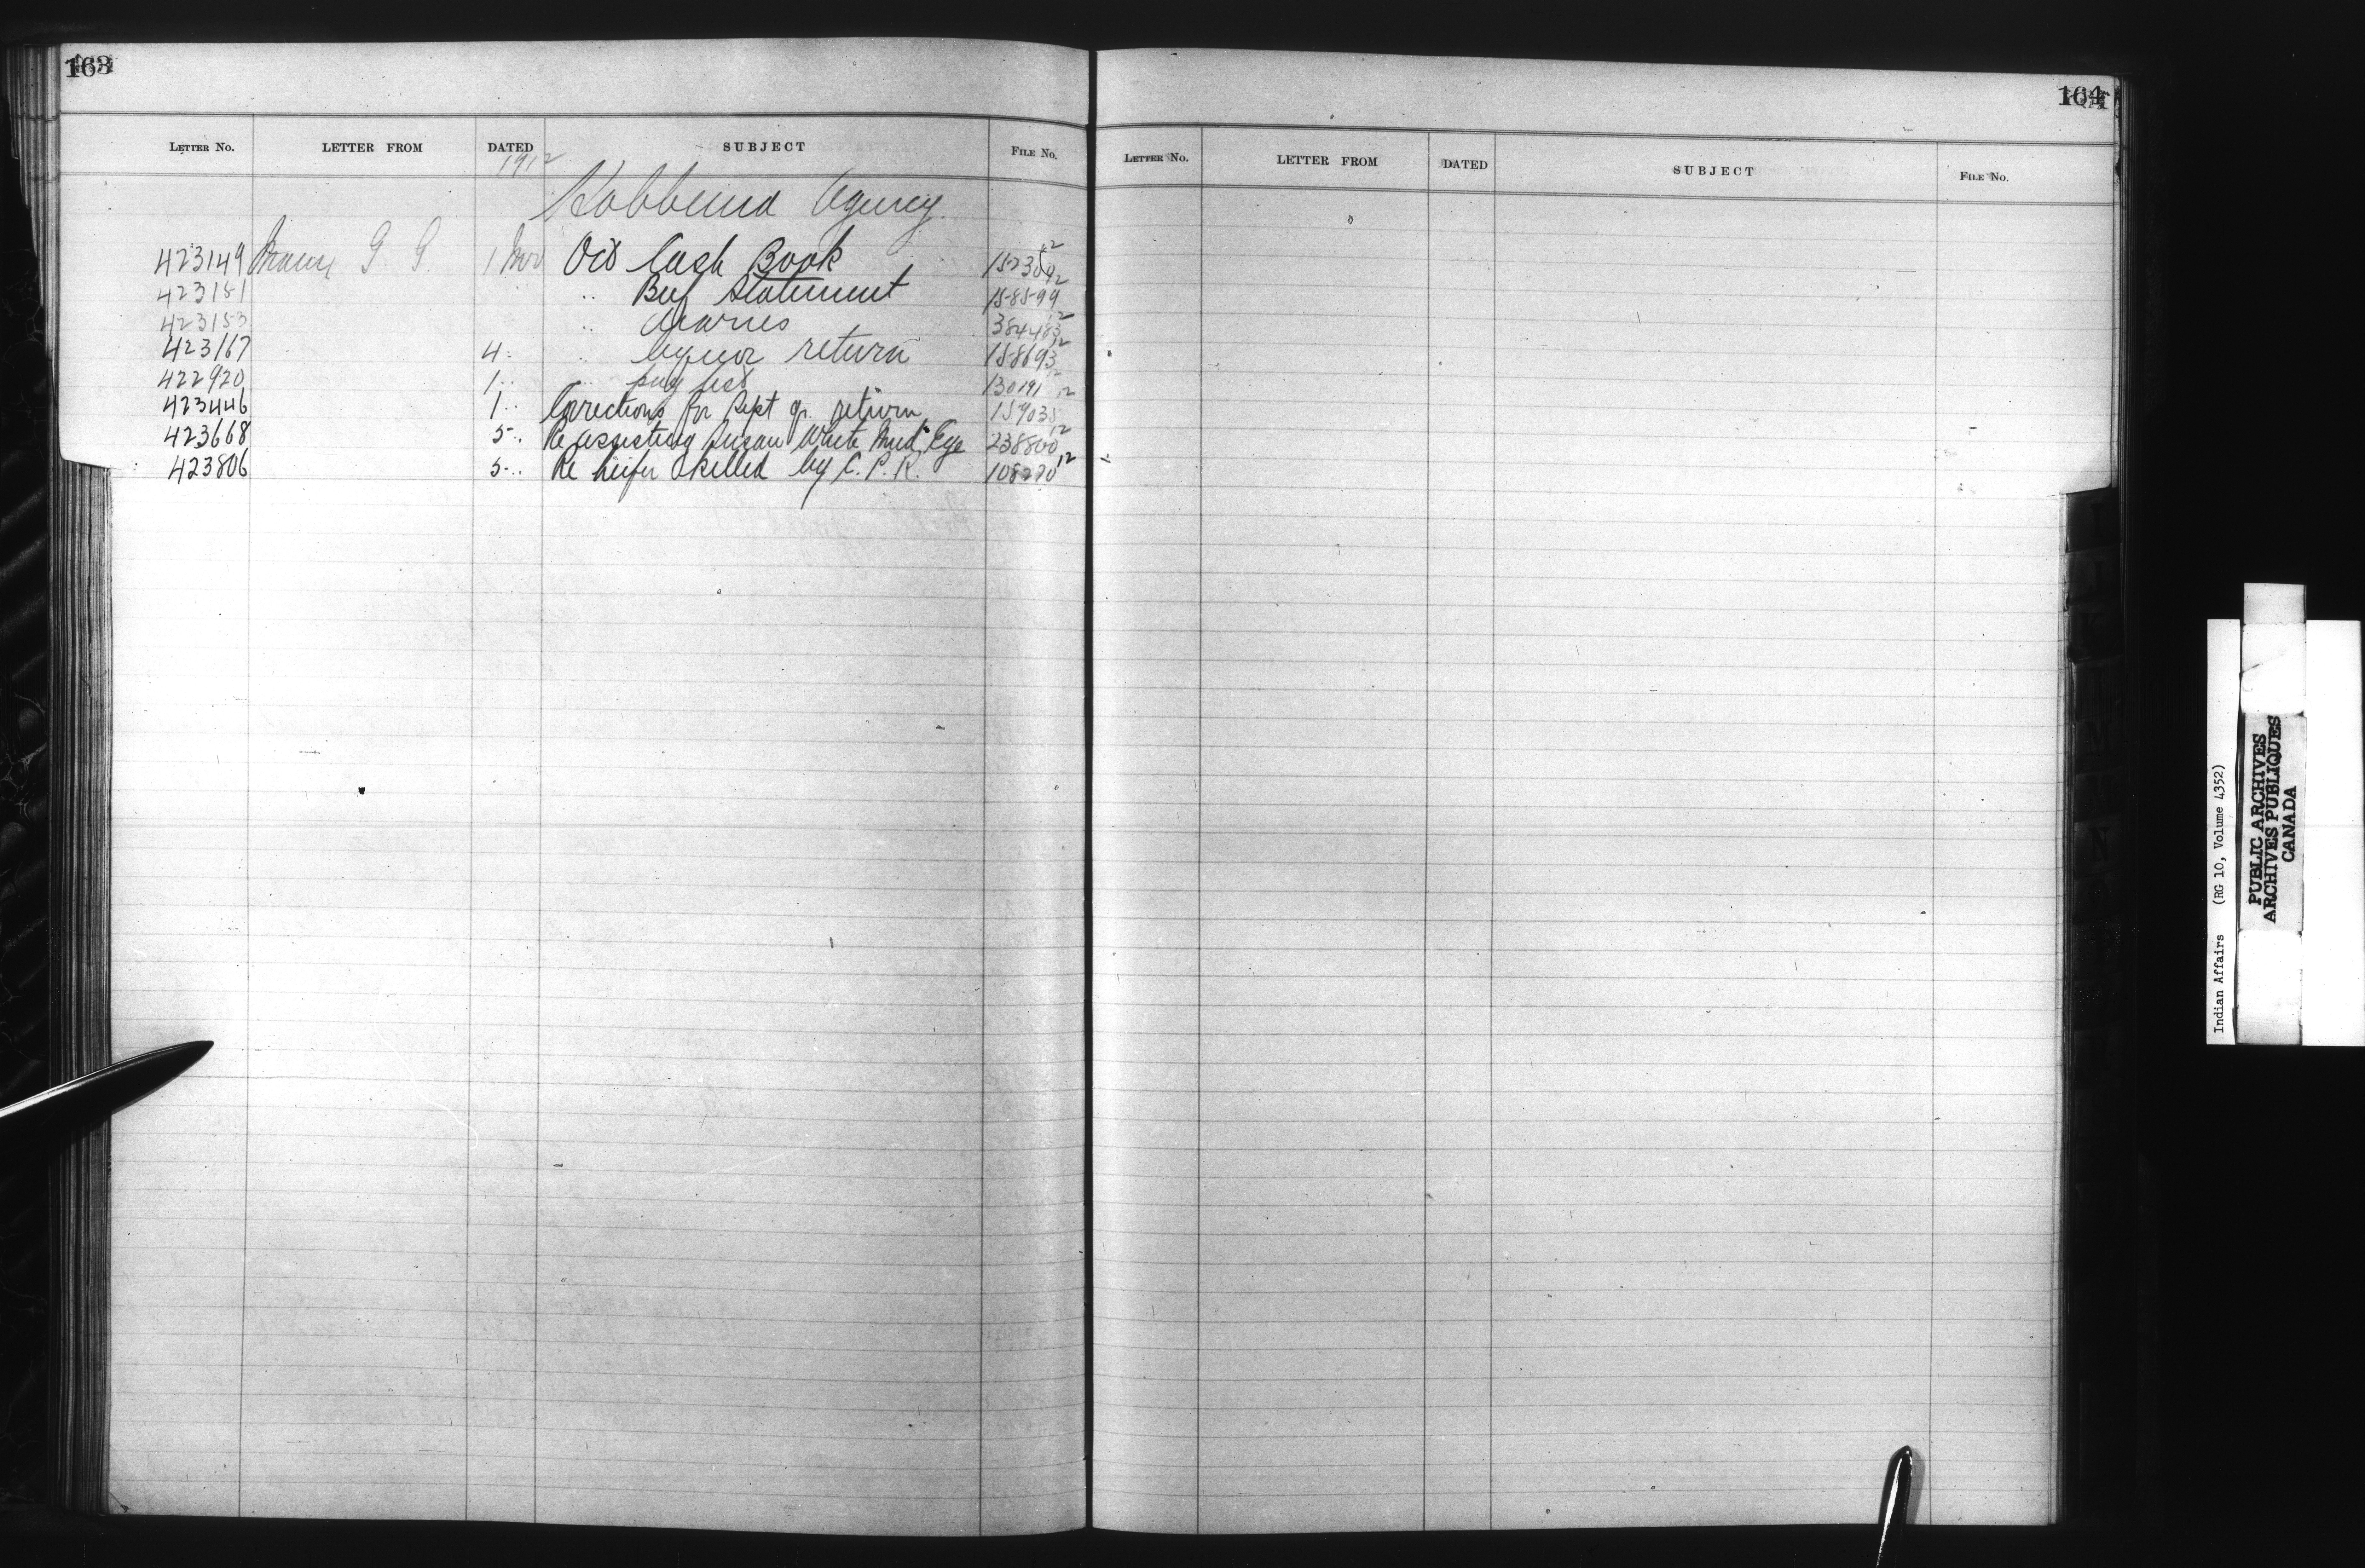 163
LETTER No. LETTER FROM DATED SUBJECT FILE No.
1912
Hobbema Agency
423149 Mann G. G. 1 Nov Oct Cash Book 152304 12
423151 " " Beef Statement 158599 12
423153 " Diaries 384483 12
423167 4 " " Liquor return 158693 12
422920 1 " " pay list 130191 12
423446 1 " Corrections for Sept qr. return 159035 12
423668 5 " Re assisting Susan White Mud Eye 238800 12
423806 5 " Re heifer killed by C. P. R. 108220 12
164
LETTER No. LETTER FROM DATED SUBJECT FILE No.
Indian Affairs (RG 10, Volume 4352)
PUBLIC ARCHIVES
ARCHIVES PUBLIQUES
CANADA